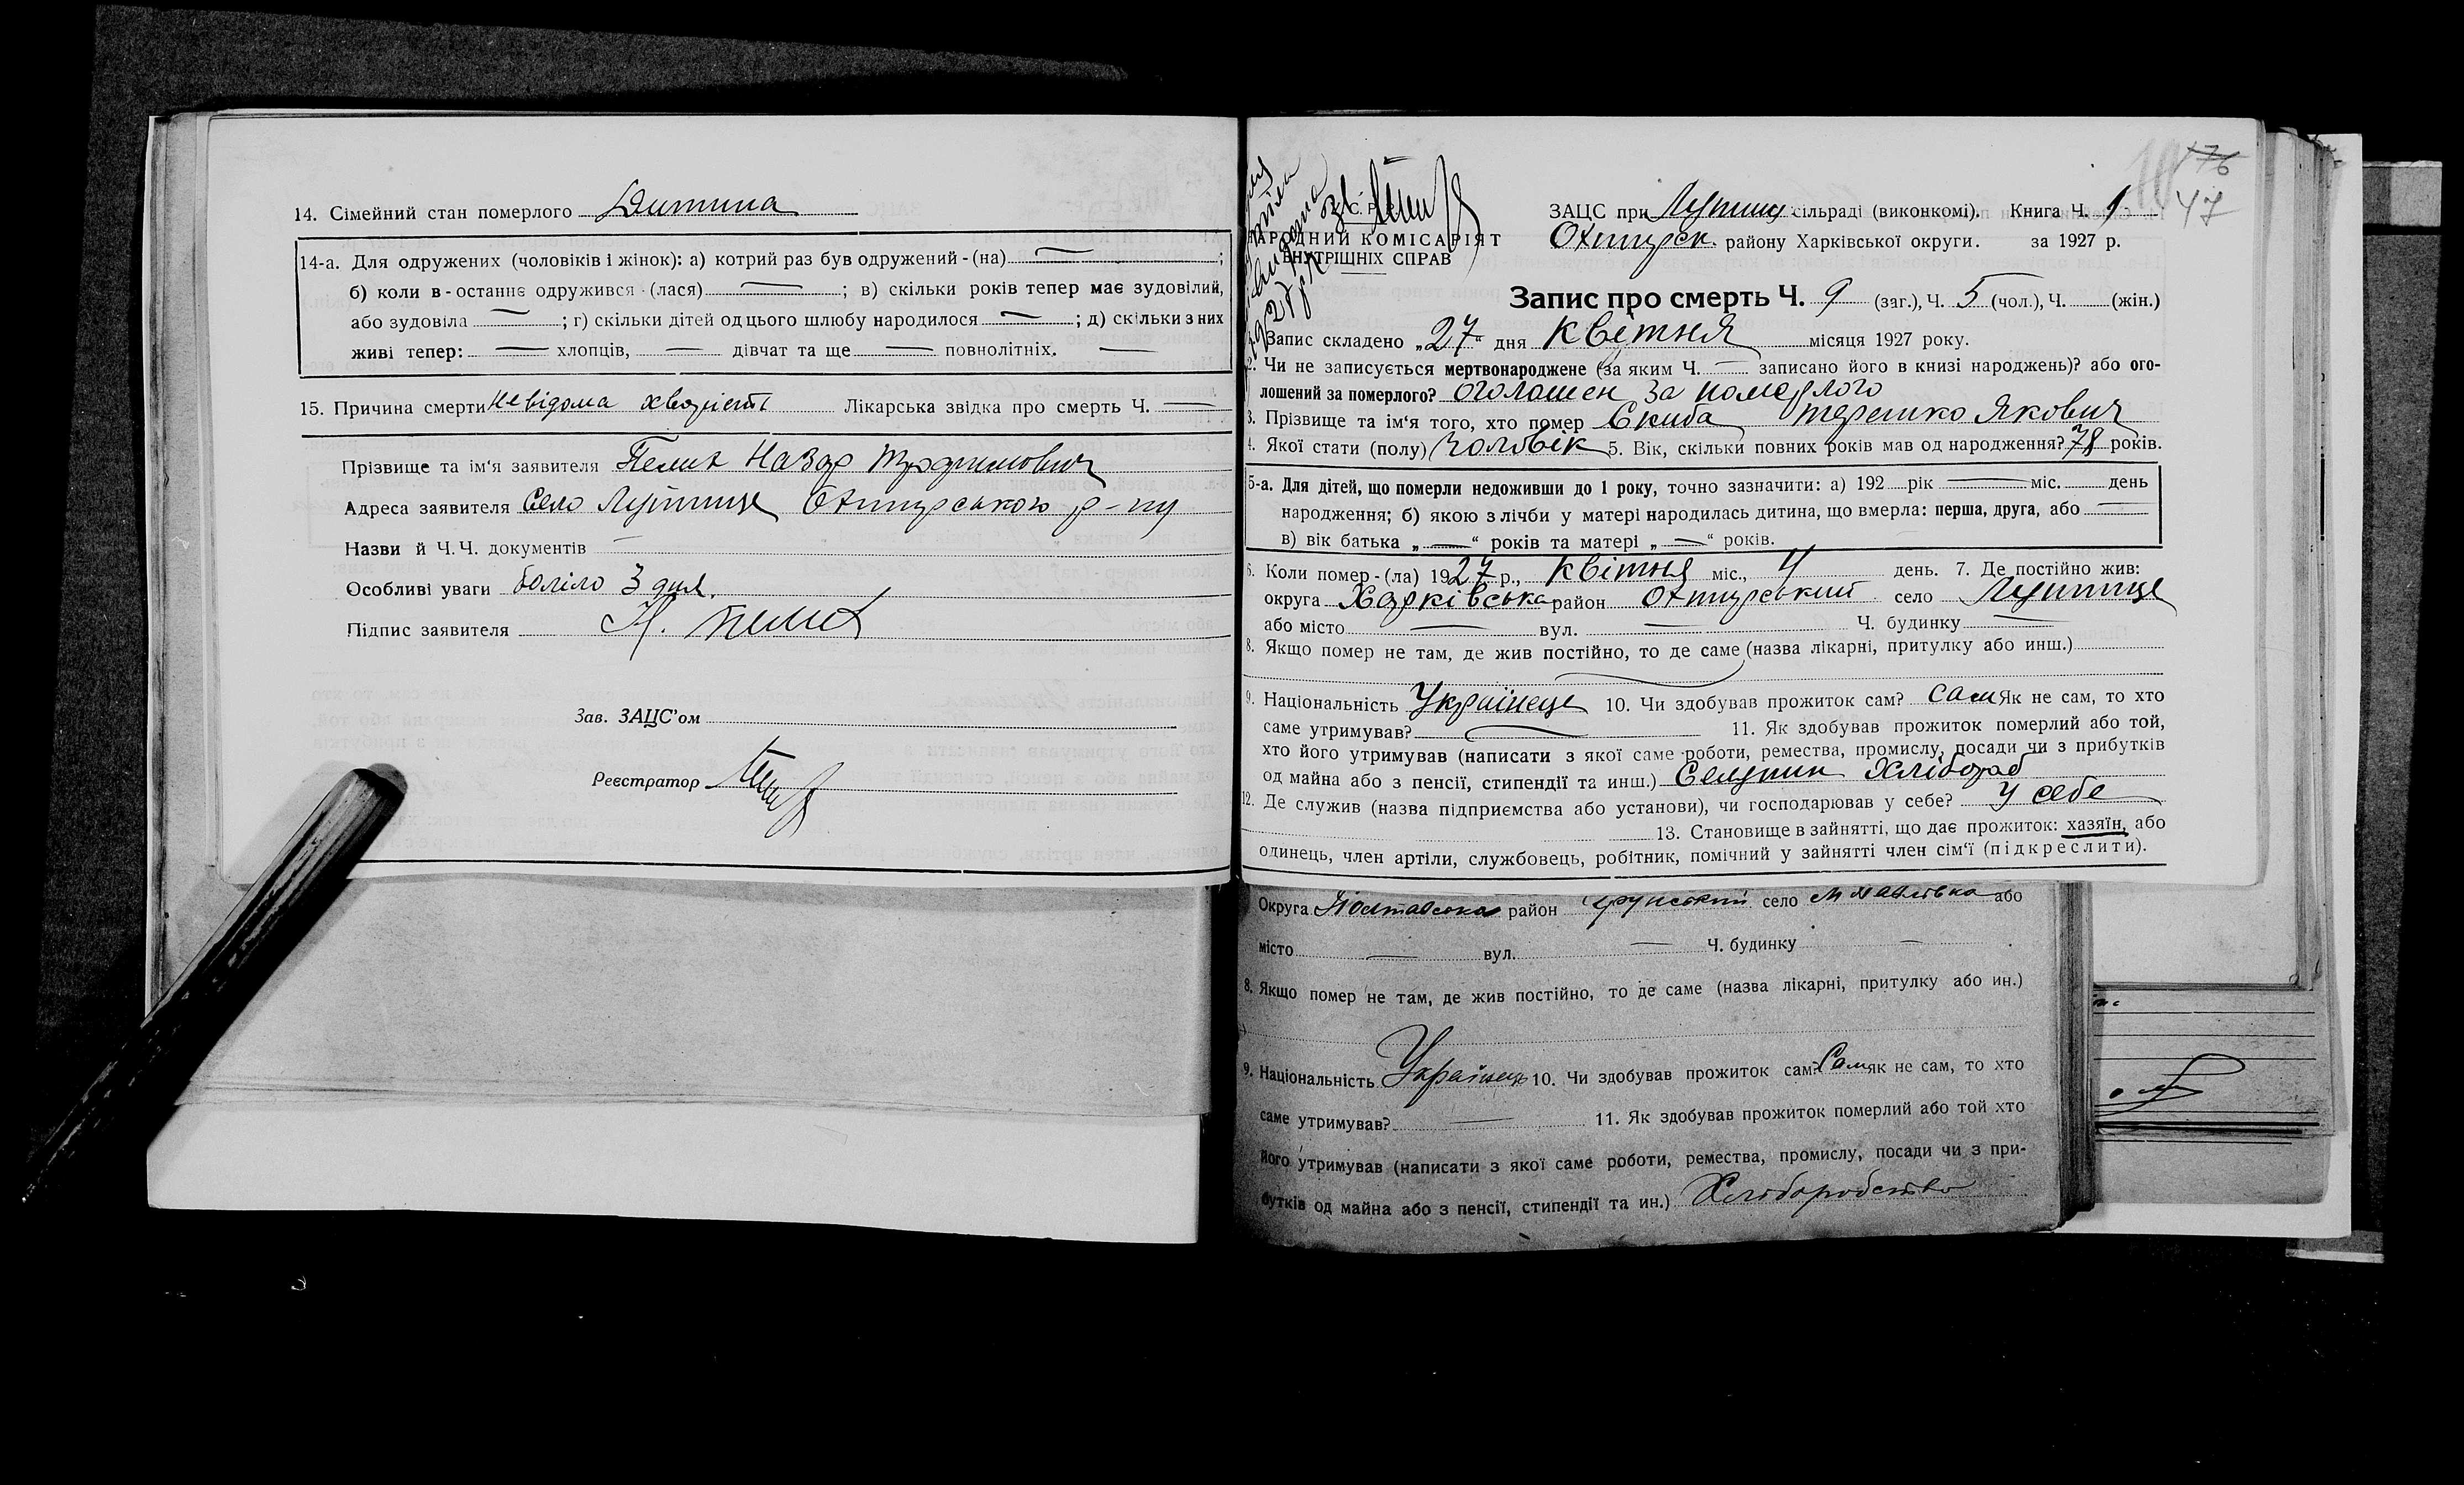 14. Сімейний стан померлого Дитина
14-а. Для одружених (чоловіків і жінок): а) котрий раз був одружений - (на) — ;
б) коли в - останнє одружився - (лася) — ; в) скільки років тепер має зудовілий,
або зудовіла — ; г) скільки дітей од цього шлюбу народилося — ; д) скільки з них
живі тепер: — хлопців, — дівчат та ще — повнолітніх. —
15. Причина смерти невідома хворість Лікарська звідка про смерть Ч. —
Прізвище та ім'я заявителя Пелих Назар
Адреса заявителя Село Лутище Охтирського р-ну
Назви й Ч.Ч. документів —
Особливі уваги боліло 3 дня.
Підпис заявителя Н. Пелих
Зав. ЗАЦС'ом
Реєстратор
176
47
У. С. Р. Р.
НАРОДНИЙ КОМІСАРІЯТ
ВНУТРІШНІХ СПРАВ
ЗАЦС при Лутищ. сільраді (виконкомі). Книга Ч. 1
Охтирск. району Харківської округи. за 1927 р.
Запис про смерть Ч. 9 (заг.), Ч. 5 (чол.), Ч. (жін.)
1. Запис складено „27“ дня Квітня місяця 1927 року.
2. Чи не записується мертвонароджене (за яким Ч. — записано його в книзі народжень)? або ого-
лошений за померлого? оголошен за померлого
3. Прізвище та ім'я того, хто помер Скиба Терешко Якович
4. Якої стати (полу) Чоловік 5. Вік, скільки повних років мав од народження? 78 років.
5-а. Для дітей, що померли недоживши до 1 року, точно зазначити: а) 192 рік — міс. день
народження; б) якою з лічби у матері народилась дитина, що вмерла: перша, друга, або —
в) вік батька „—“ років та матері „—“ років.
6. Коли помер - (ла) 1927 р., Квітня міс., день. 7. Де постійно жив:
округа Харківська район Охтирський село Лутище
або місто — вул. — Ч. будинку —
8. Якщо помер не там, де жив постійно, то де саме (назва лікарні, притулку або инш.)
9. Національність Українець 10. Чи здобував прожиток сам? сам Як не сам, то хто
саме утримував? — 11. Як здобував прожиток померлий або той,
хто його утримував (написати з якої саме роботи, ремества, промислу, посади чи з прибутків
од майна або з пенсії, стипендії та инш.) Селянин Хлібороб
12. Де служив (назва підприємства або установи), чи господарював у себе? У себе
13. Становище в зайнятті, що дає прожиток: хазяїн, або
одинець, член артіли, службовець, робітник, помічний у зайнятті член сім'ї (підкреслити).
Округа Полтавська район Грунський село або
місто — вул. — Ч. будинку —
8. Якщо помер не там, де жив постійно, то де саме (назва лікарні, притулку або ин.)
9. Національність Українець 10. Чи здобував прожиток сам? Сам як не сам, то хто
саме утримував? — 11. Як здобував прожиток померлий або той хто
його утримував (написати з якої саме роботи, ремества, промислу, посади чи з при-
бутків од майна або з пенсії, стипендії та ин.) Хліборобство